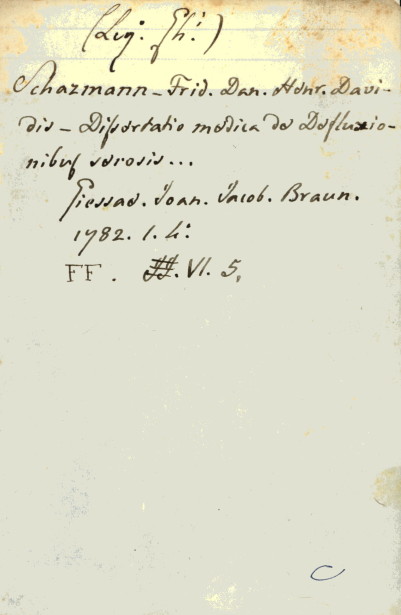 (Leg. Gh:)
Schazmann - Frid. Dan. Henr. Davi-
dis - Dissertatio medica de Defluxio-
nibus serosis...
Giessae. Joan. Jacob. Braun.
1782. 1. 4:
FF. VI. 5.
C